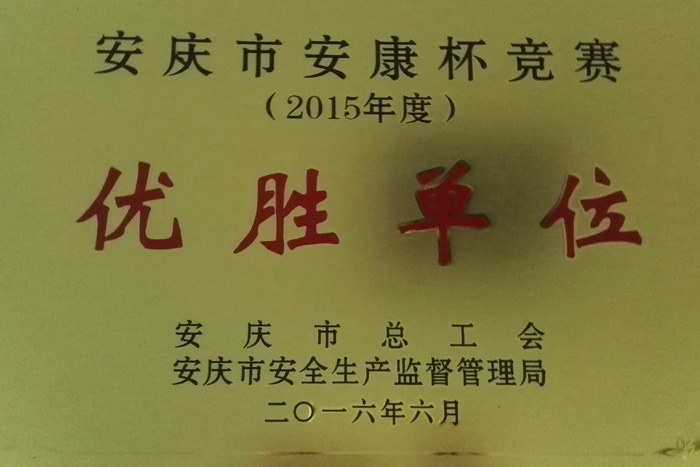 安庆市安康杯竞赛
（2015年度）
优胜单位
安庆市总工会
安庆市安全生产监督管理局
二〇一六年六月